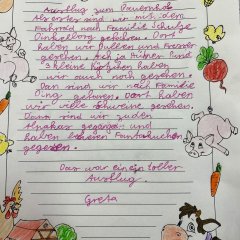 Ausflug zum Bauernhof
Als erster sind wir mit dem
Fahrrad nach Familie Schulze
gefahren. Dort
haben wir Bullen und Fresser
gesehen. Ach ja Hühner und
3 kleine Kätzchen haben
wir auch noch gesehen.
Dan sind wir nach Familie
Ding gefahren dort haben
wir viele Schweine gesehen.
Dann sind wir zu den
Alpakas gegangen und
haben leckeren
gegessen.
Das war ein toller
Ausflug.
Greta